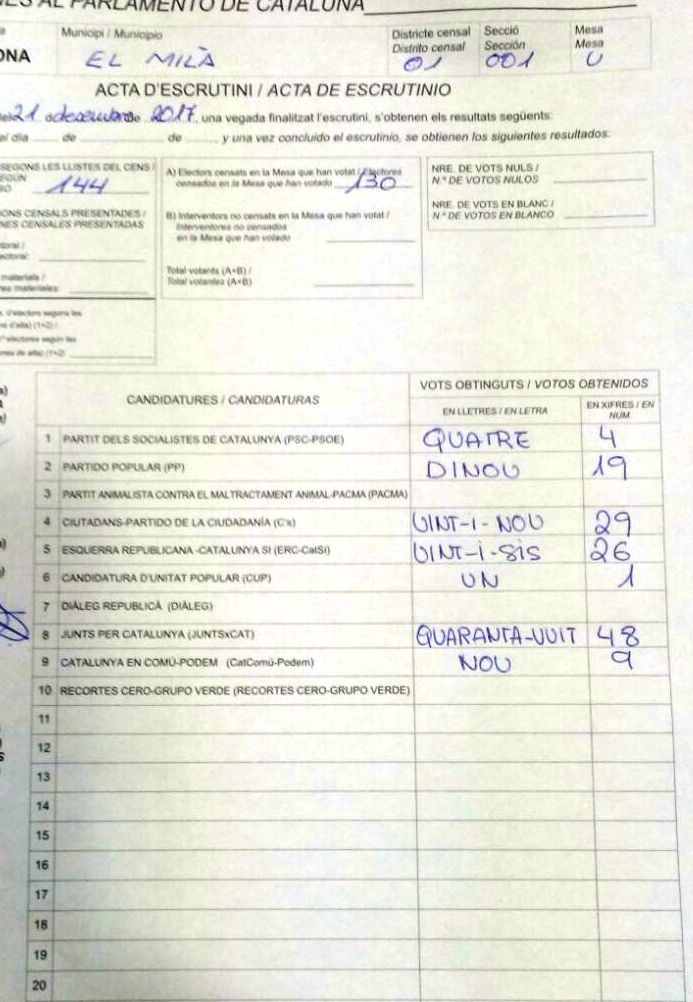 AL PARLAMENTO DE CATALUÑA
Municipi / Municipio
Districte censal Secció Mesa
Distrito censal Sección Mesa
ONA EL MILÀ 01 001 U
ACTA D'ESCRUTINI / ACTA DE ESCRUTINIO
21 desembre de 2017, una vegada finalitzat l'escrutini, s'obtenen els resultats següents:
el día de de y una vez concluido el escrutinio, se obtienen los siguientes resultados:
SEGONS LES LLISTES DEL CENS /
144
A) Electors censats en la Mesa que han votat / Electores
censados en la Mesa que han votado 130
NRE. DE VOTS NULS /
N.º DE VOTOS NULOS
NRE. DE VOTS EN BLANC /
N.º DE VOTOS EN BLANCO
ONS CENSALS PRESENTADES /
NES CENSALES PRESENTADAS
B) Interventors no censats en la Mesa que han votat /
Interventores no censados
en la Mesa que han votado
Total votants (A+B) /
Total votantes (A+B)
materials /
es materiales
CANDIDATURES / CANDIDATURAS
VOTS OBTINGUTS / VOTOS OBTENIDOS
EN LLETRES / EN LETRA
EN XIFRES / EN
NUM.
1 PARTIT DELS SOCIALISTES DE CATALUNYA (PSC-PSOE) QUATRE 4
2 PARTIDO POPULAR (PP) DINOU 19
3 PARTIT ANIMALISTA CONTRA EL MALTRACTAMENT ANIMAL-PACMA (PACMA)
4 CIUTADANS-PARTIDO DE LA CIUDADANÍA (C's) VINT-I-NOU 29
5 ESQUERRA REPUBLICANA -CATALUNYA SI (ERC-CatSI) VINT-I-SIS 26
6 CANDIDATURA D'UNITAT POPULAR (CUP) UN 1
7 DIÀLEG REPUBLICÀ (DIÀLEG)
8 JUNTS PER CATALUNYA (JUNTSxCAT) QUARANTA-VUIT 48
9 CATALUNYA EN COMÚ-PODEM (CatComú-Podem) NOU 9
10 RECORTES CERO-GRUPO VERDE (RECORTES CERO-GRUPO VERDE)
11
12
13
14
15
16
17
18
19
20